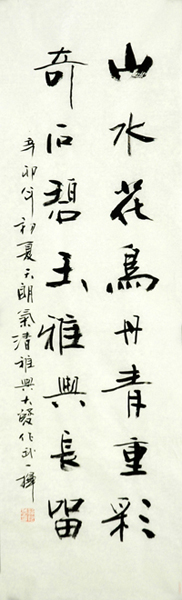 山水花鳥丹青重彩
奇石碧玉雅興長留
辛卯年初夏天朗氣清雅興大發作此一揮